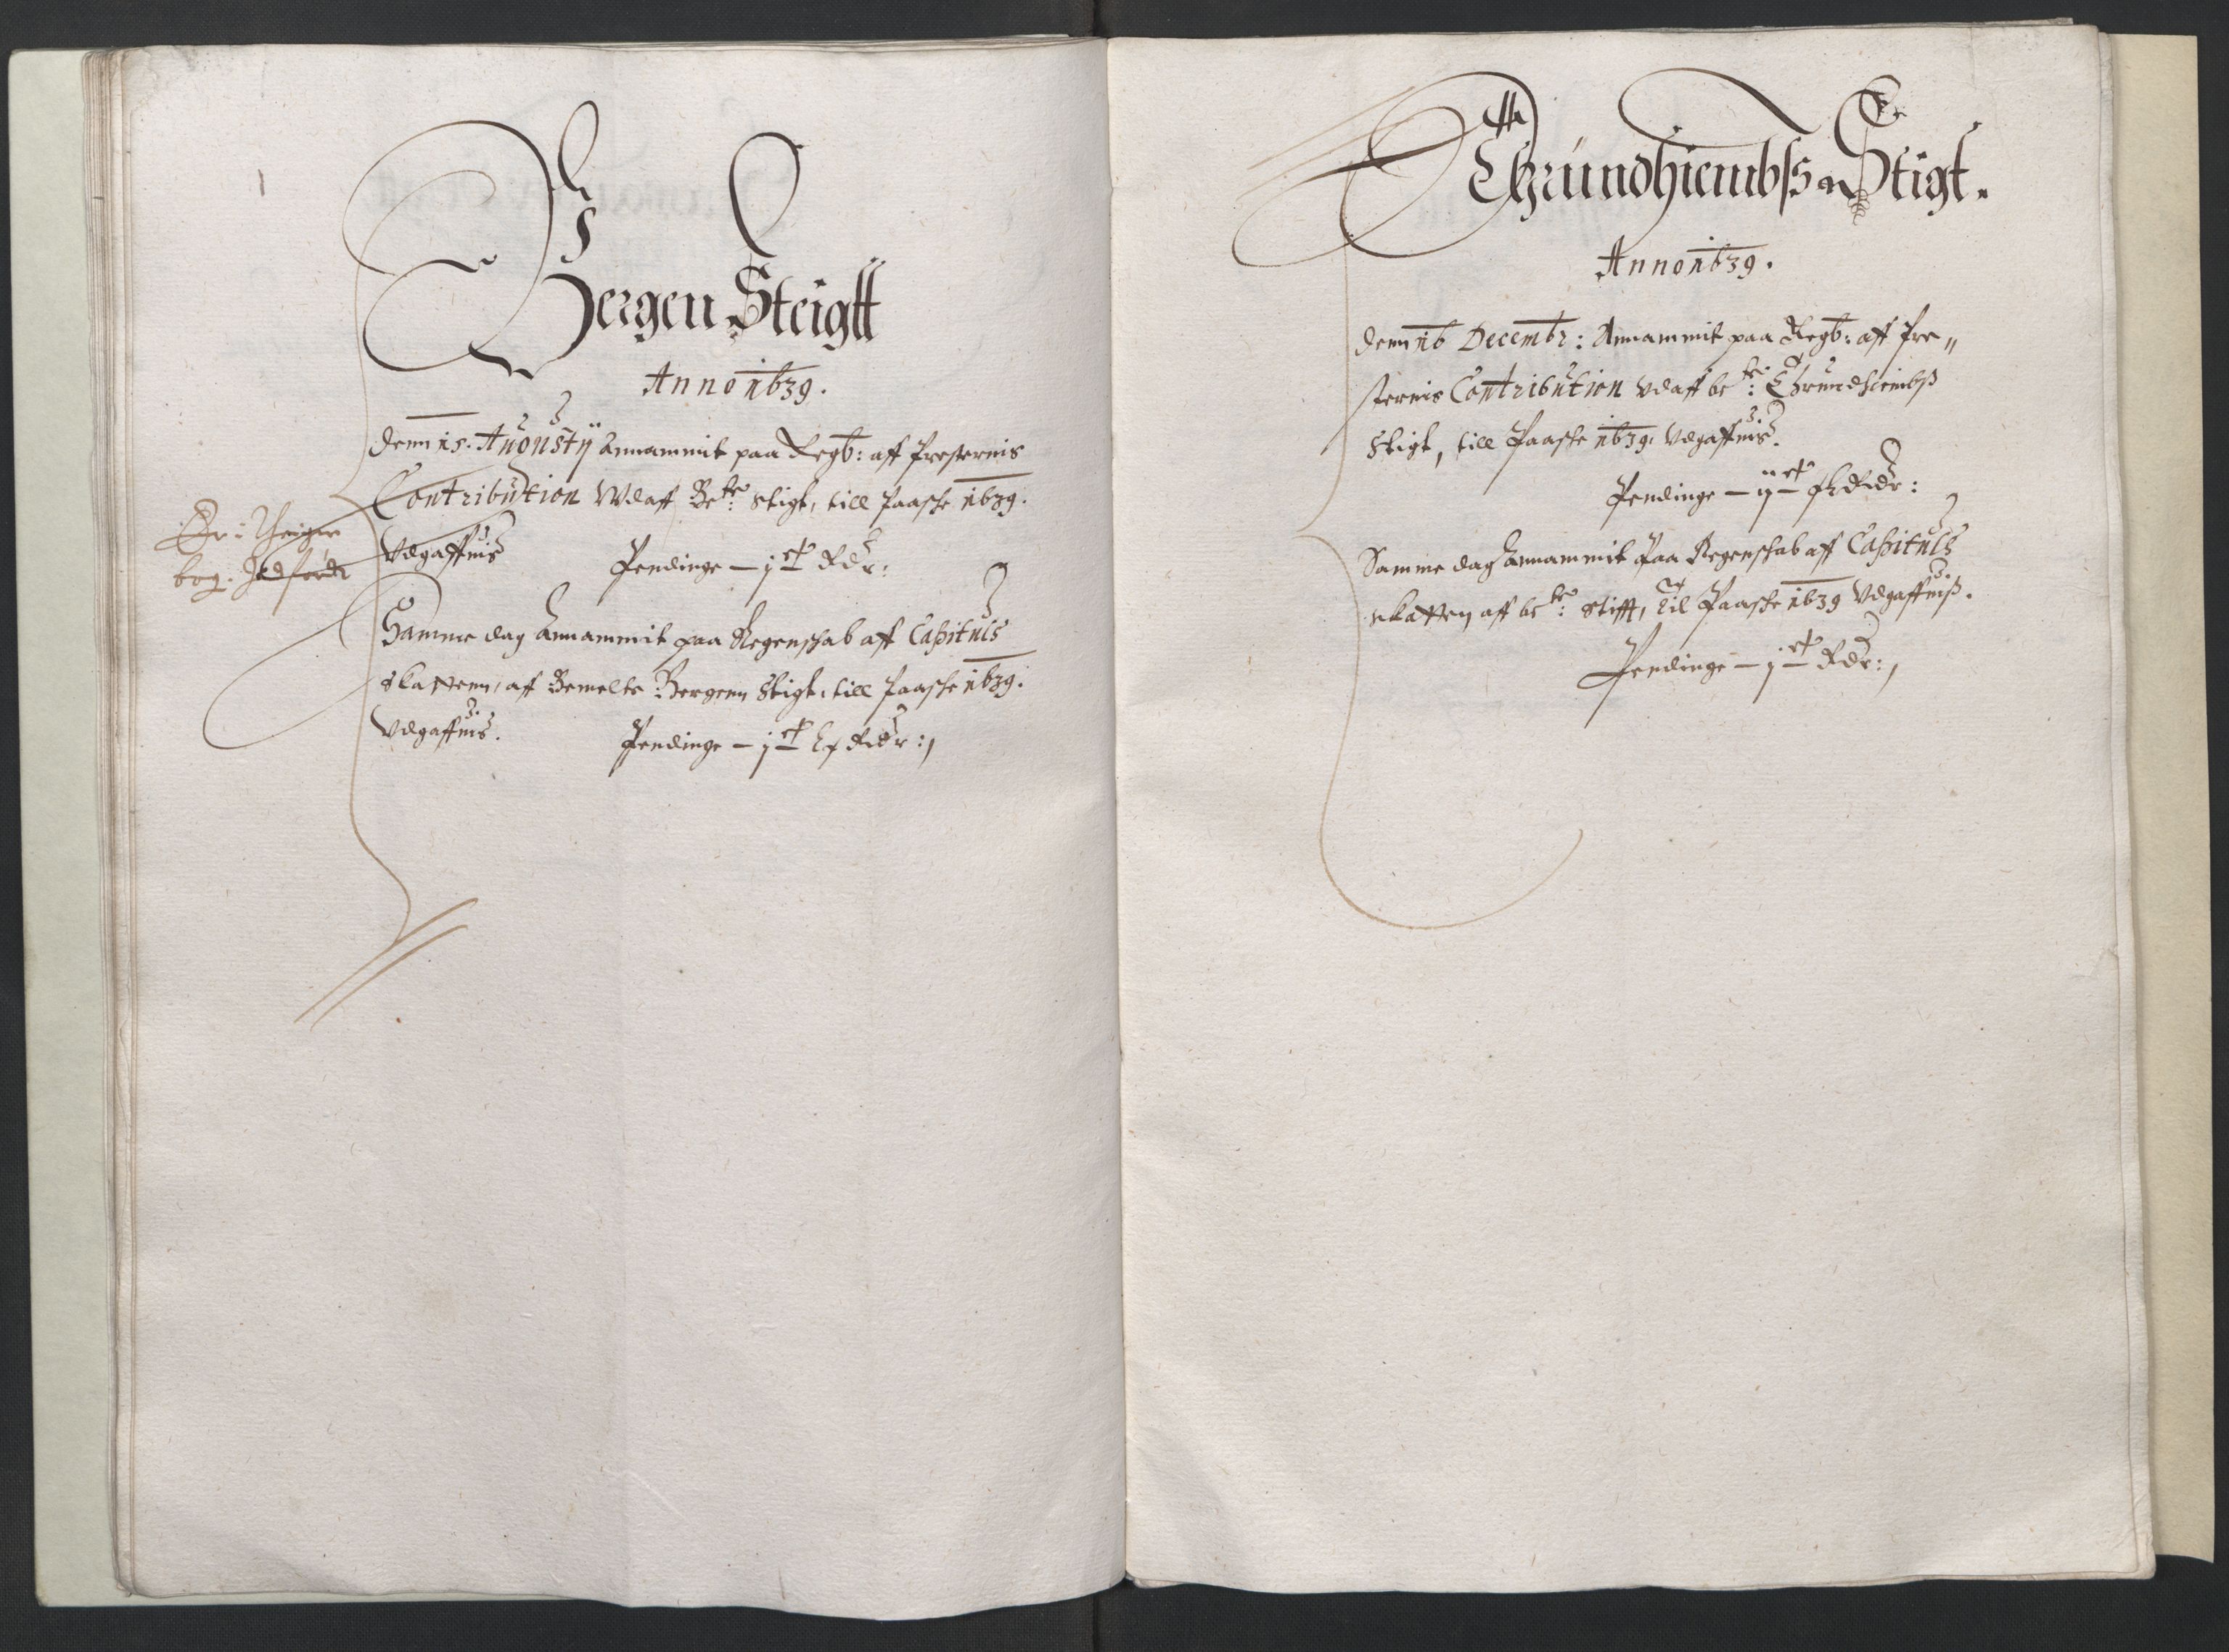 Bergen Steigtt
Anno 1639.
Denn 15. Augustij Annammit paa Regb: aff Presternis
Contribution Wdaff Bete: Stigt, till Paasche 1639.
Vdgaffuis Pendinge — j ct Rdr:
Er i
bog. Jndført
Samme dag Annammit paa Regenschab aff Capituls
skattenn, aff Bemelte Bergenn Stigt, till Paasche 1639.
Vdgaffuis. Pendinge — j ct Lx Rdr:
Thrundhiembss Stigt.
Anno 1639.
Denn 16 Decembr: Annammit paa Regb: aff Pre„
sternis Contribution vdaff bete: Thrundhiembß
Stigt, till Paasche 1639, Vdgaffuis.
Pendinge — ij ct Rdr:
Samme dag Annammit paa Regenschab aff Capituls
skatten aff bete: Stifft, til Paasche 1639 Vdgaffuiß.
Pendinge — j ct Rdr: